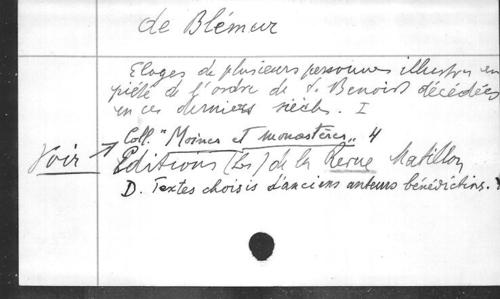 de Blémur
Eloges de plusieurs personnes illustres en
piété de l'ordre de S. Benoist décédées
en ces derniers siècles. I
Coll. "Moines et monastères" 4
Voir Editions (Les) de la Revue Mabillon
D. Textes choisis d'anciens auteurs bénédictins.